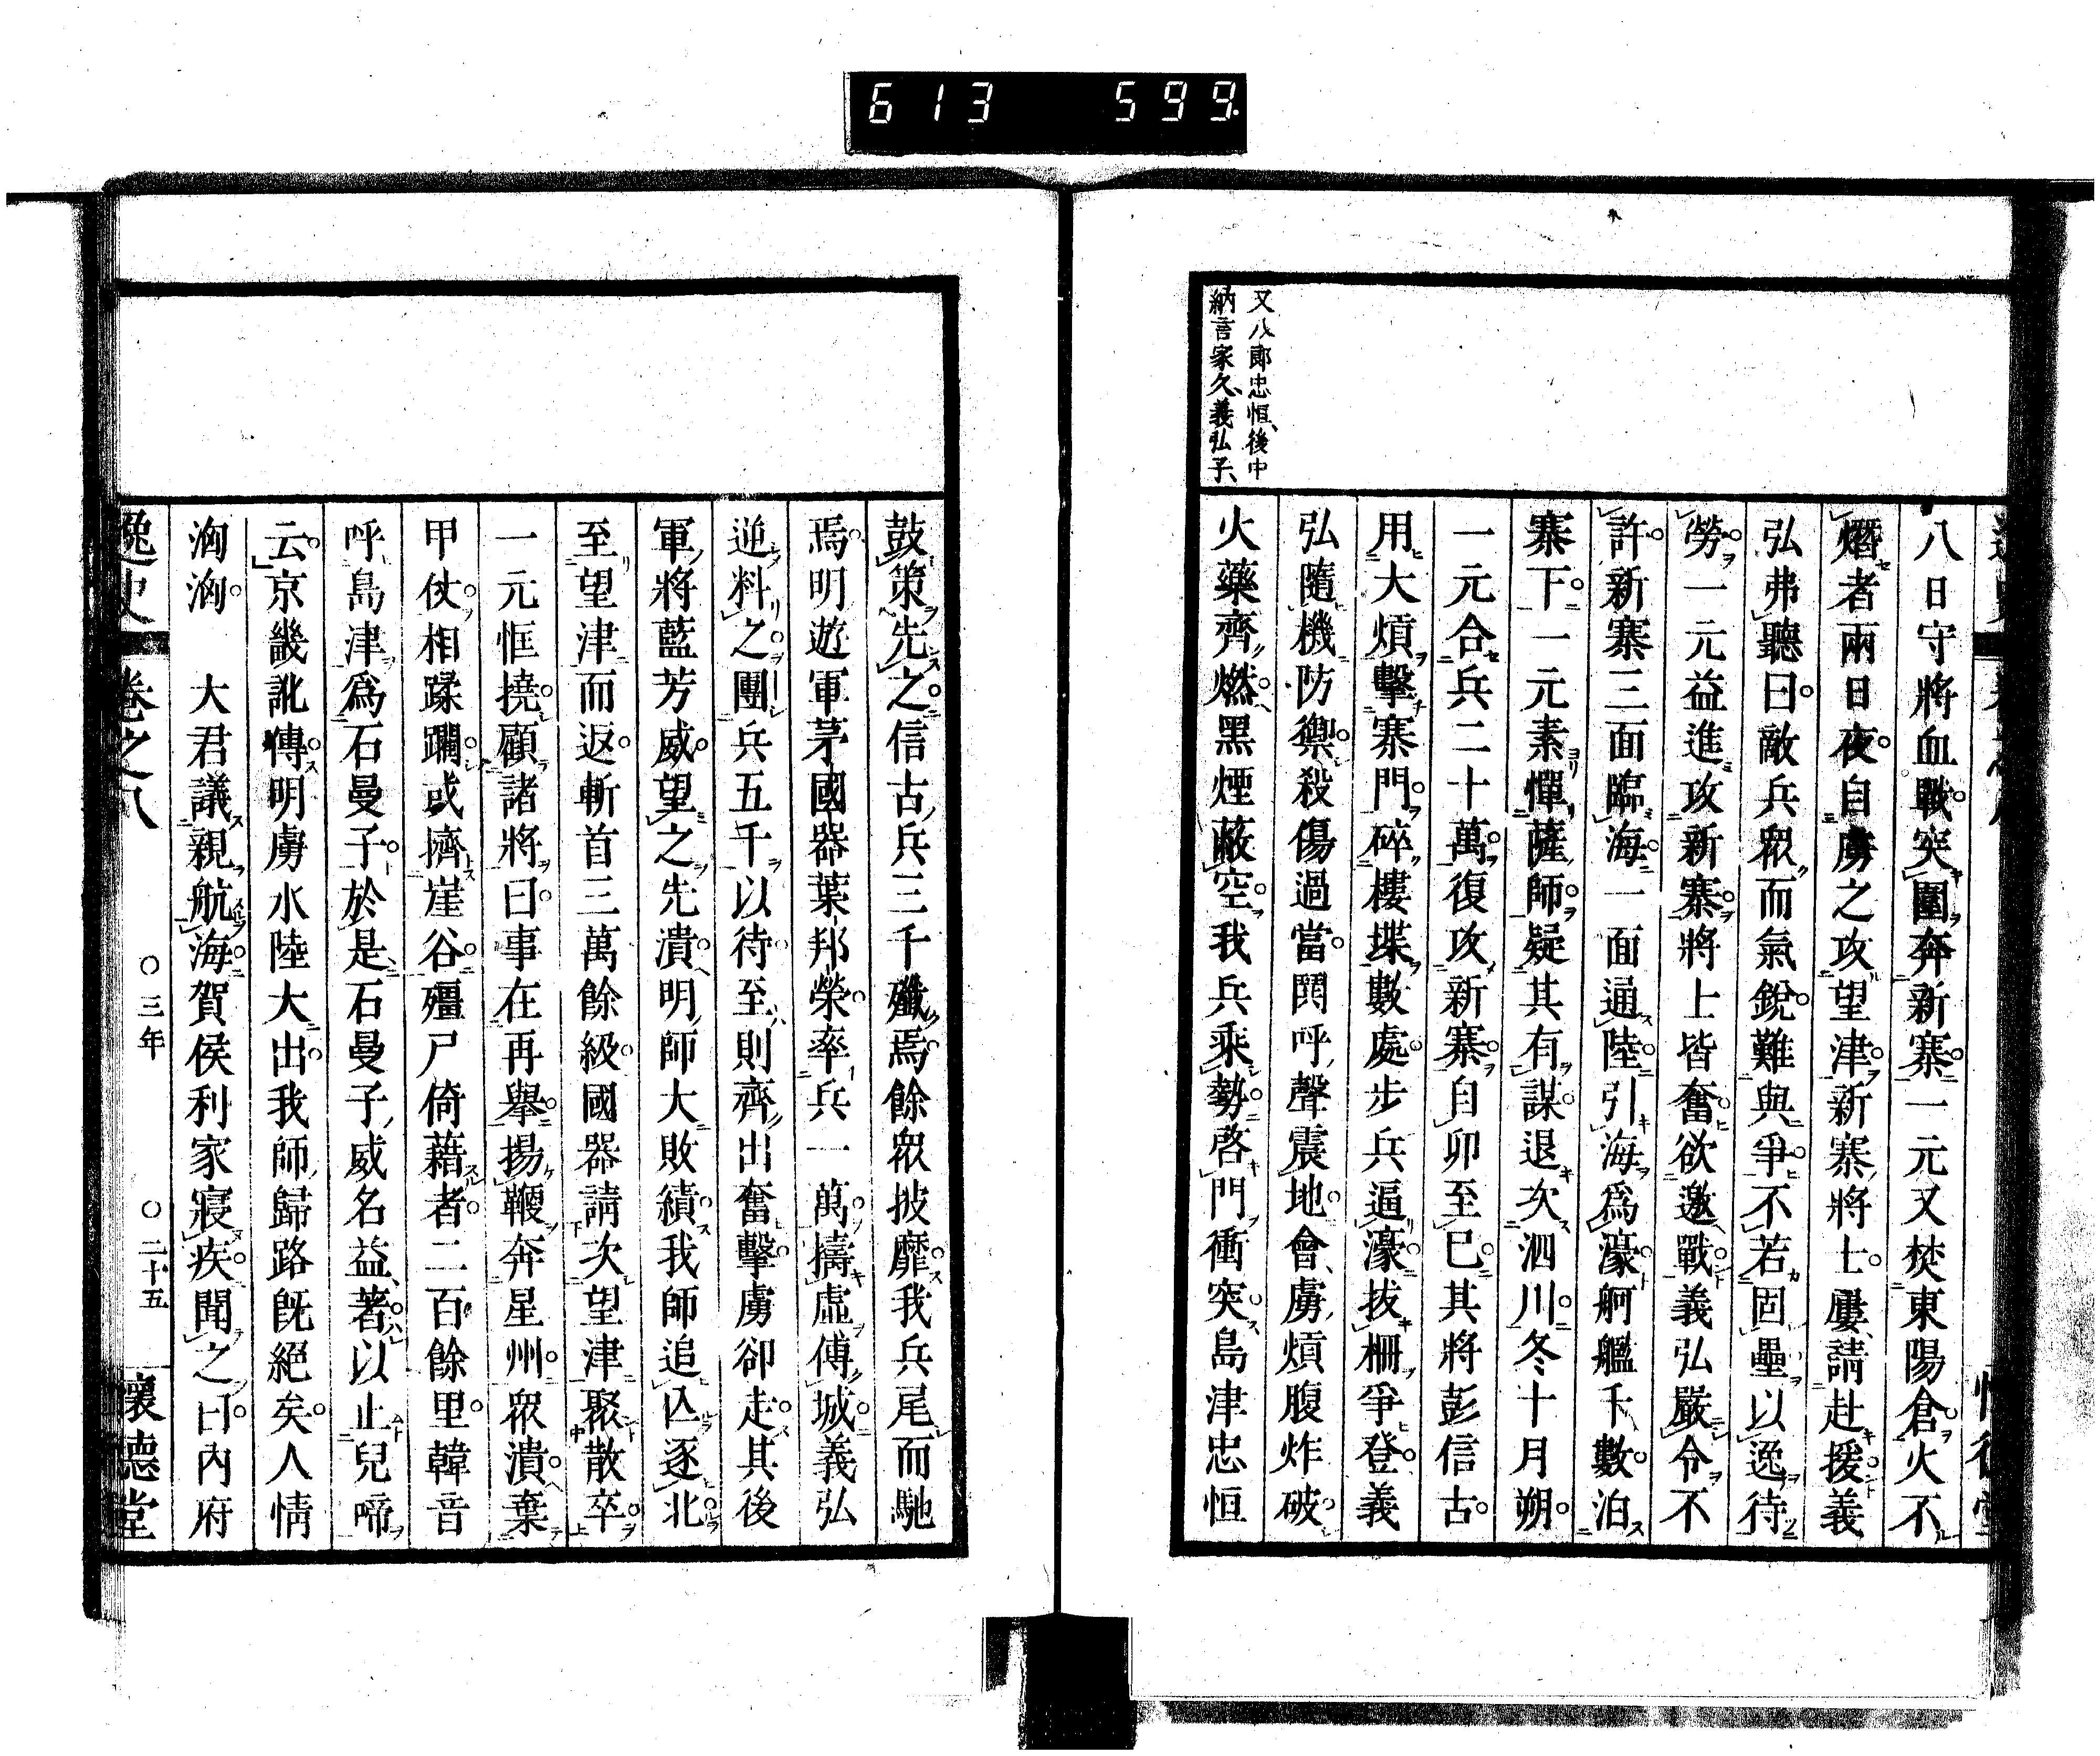 613 599.
又八郎忠恒、後中
納言家久、義弘子、
八日守將血戰突圍奔新寨一元又焚東陽倉火不
熸者兩日夜自虜之攻望津新寨將士屢請赴援義
弘弗聽曰敵兵衆而氣銳難與爭不若固壘以逸待
勞一元益進攻新寨將士皆奮欲邀戰義弘嚴令不
許新寨三面臨海一面通陸引海爲濠舸艦千數泊
寨下一元素憚薩師疑其有謀退次泗川冬十月朔
一元合兵二十萬復攻新寨自卯至巳其將彭信古
用大熕擊寨門碎樓堞數處步兵逼濠拔柵爭登義
弘隨機防禦殺傷過當鬨呼聲震地會虜熕腹炸破
火藥齊燃黑煙蔽空我兵乘勢啓門衝突島津忠恒
鼓策先之信古兵三千殲焉餘衆披靡我兵尾而馳
焉明遊軍茅國器葉邦榮率兵一萬擣虛傅城義弘
逆料之團兵五千以待至則齊出奮擊虜卻走其後
軍將藍芳威望之先潰明師大敗績我師追亾逐北
至望津而返斬首三萬餘級國器請次望津聚散卒
一元恇撓顧諸將曰事在再擧揚鞭奔星州衆潰棄
甲仗相蹂躙或擠崖谷殭尸倚藉者二百餘里韓音
呼島津爲石曼子於是石曼子威名益著以止兒啼
云京畿訛傳明虜水陸大出我師歸路既絕矣人情
洶洶　大君議親航海賀侯利家寢疾聞之曰內府
逸史 卷之八 〇三年 〇二十五 懷德堂